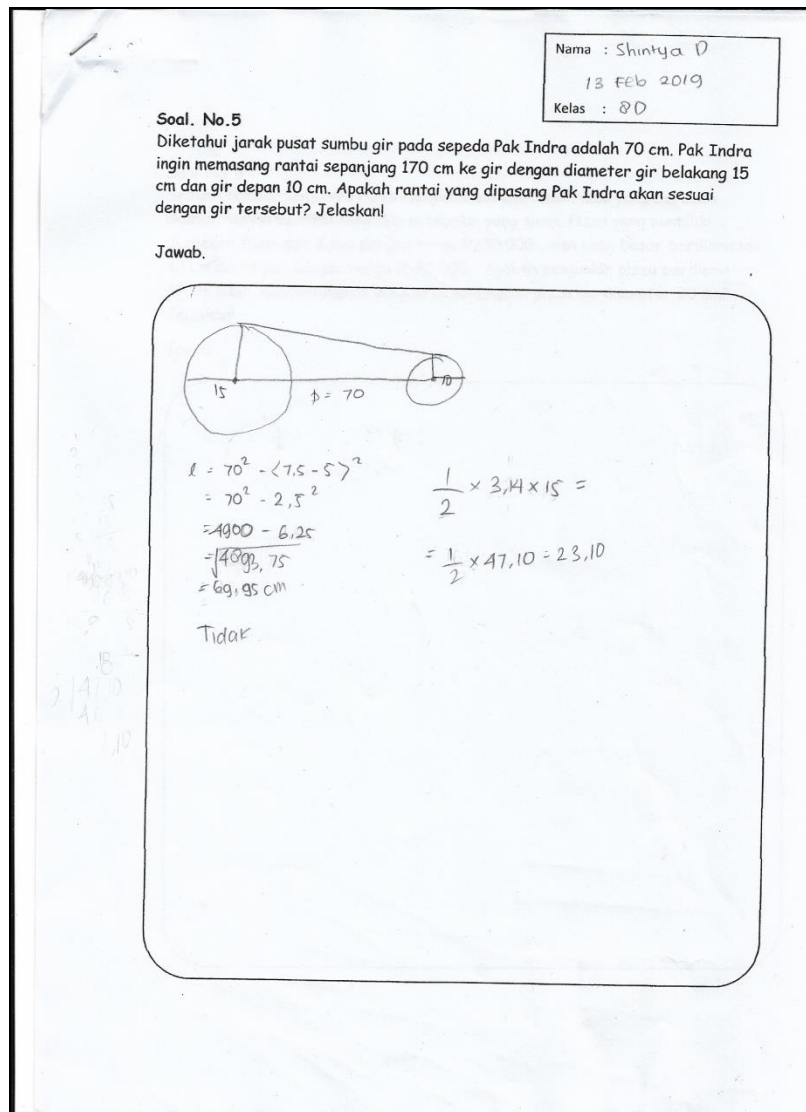 Nama : Shintya D
13 Feb 2019
Kelas : 8D
Soal. No.5
Diketahui jarak pusat sumbu gir pada sepeda Pak Indra adalah 70 cm. Pak Indra
ingin memasang rantai sepanjang 170 cm ke gir dengan diameter gir belakang 15
cm dan gir depan 10 cm. Apakah rantai yang dipasang Pak Indra akan sesuai
dengan gir tersebut? Jelaskan!
Jawab.
15 p = 70 10
l = 70² - (7,5 - 5)²
= 70² - 2,5²
= 4900 - 6,25
= √4893,75
= 69,95 cm
Tidak
1/2 × 3,14 × 15 =
= 1/2 × 47,10 = 23,10